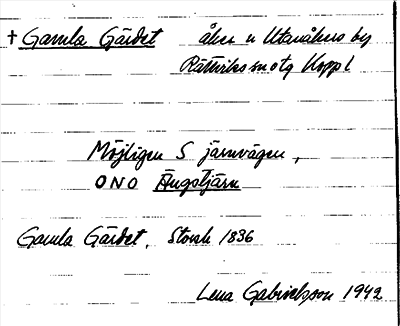 † Gamla Gärdet åker n Utanåkers by
Rättviks sn otg Koppl
Möjligen S järnvägen,
ONO Ängstjärn
Gamla Gärdet, Storsk 1836
Lena Gabrielsson 1942